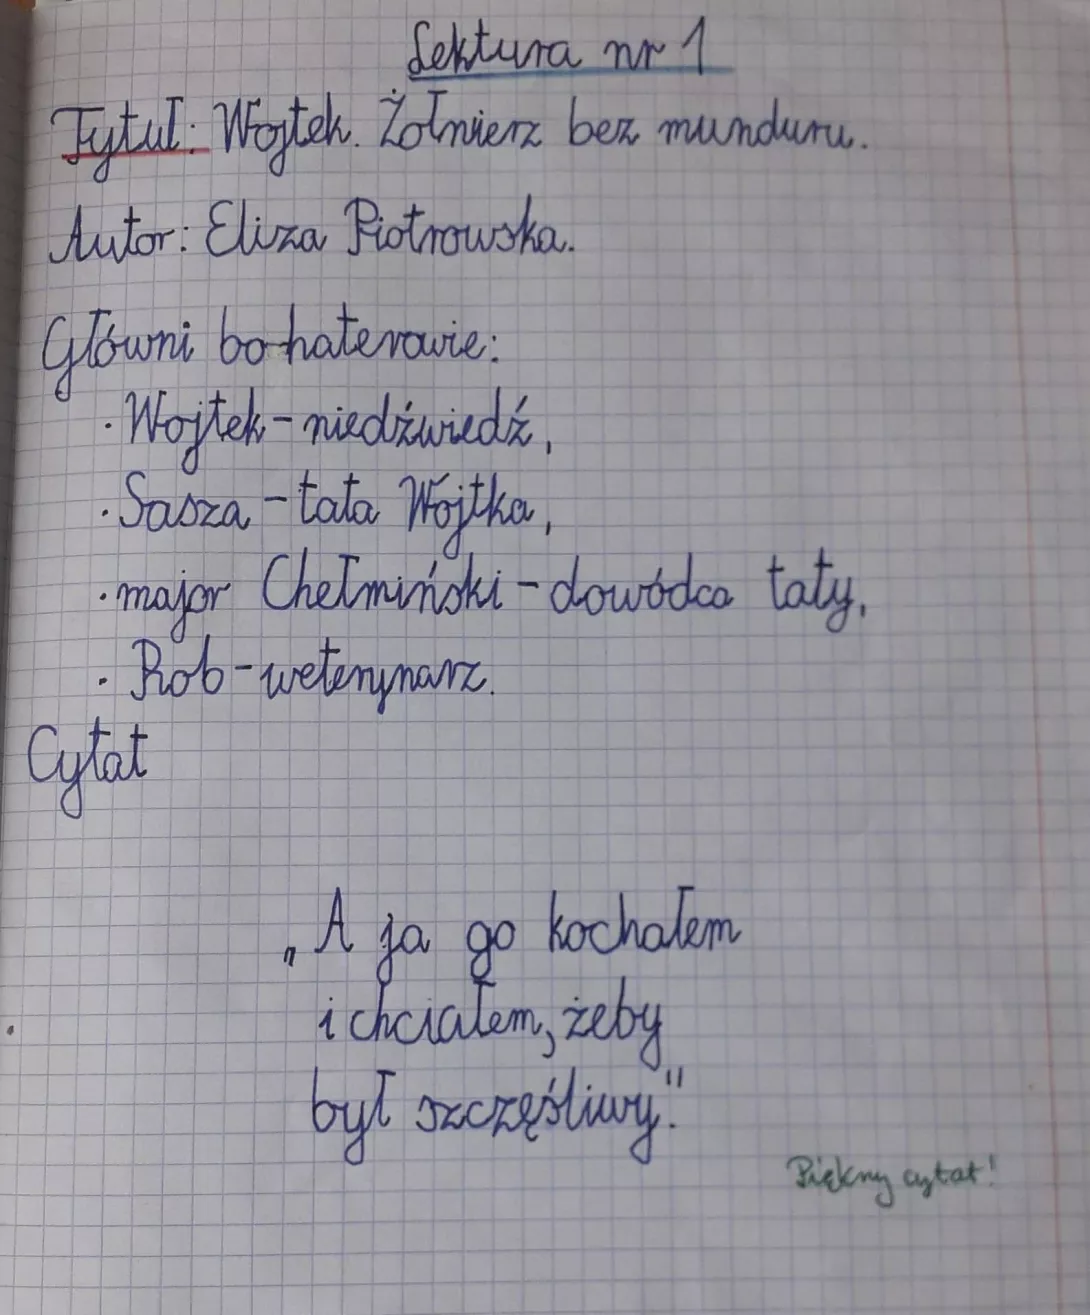 Lektura nr 1
Tytuł: Wojtek. Żołnierz bez munduru.
Autor: Eliza Piotrowska.
Główni bohaterowie:
· Wojtek - niedźwiedź,
· Sasza - tata Wojtka,
· major Chełmiński - dowódca taty,
· Rob - weterynarz.
Cytat
„A ja go kochałem
i chciałem, żeby
był szczęśliwy."
Piękny cytat!